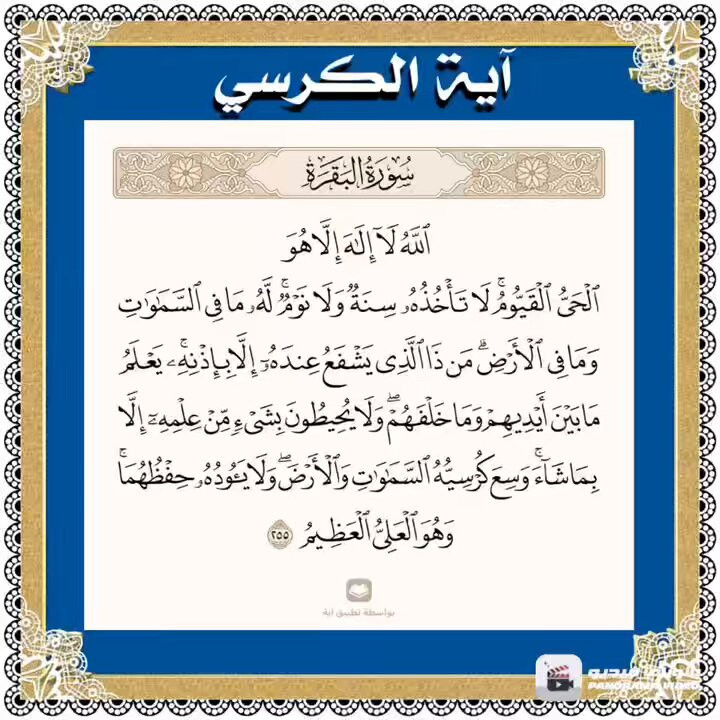 آية الكرسي
سُورَةُ البَقَرَةِ
ٱللَّهُ لَآ إِلَٰهَ إِلَّا هُوَ
ٱلْحَىُّ ٱلْقَيُّومُ ۚ لَا تَأْخُذُهُۥ سِنَةٌ وَلَا نَوْمٌ ۚ لَّهُۥ مَا فِى ٱلسَّمَٰوَٰتِ
وَمَا فِى ٱلْأَرْضِ ۗ مَن ذَا ٱلَّذِى يَشْفَعُ عِندَهُۥٓ إِلَّا بِإِذْنِهِۦ ۚ يَعْلَمُ
مَا بَيْنَ أَيْدِيهِمْ وَمَا خَلْفَهُمْ ۖ وَلَا يُحِيطُونَ بِشَىْءٍ مِّنْ عِلْمِهِۦٓ إِلَّا
بِمَا شَآءَ ۚ وَسِعَ كُرْسِيُّهُ ٱلسَّمَٰوَٰتِ وَٱلْأَرْضَ ۖ وَلَا يَـُٔودُهُۥ حِفْظُهُمَا ۚ
وَهُوَ ٱلْعَلِىُّ ٱلْعَظِيمُ ٢٥٥
بواسطة تطبيق آية
PANORAMA VIDEO